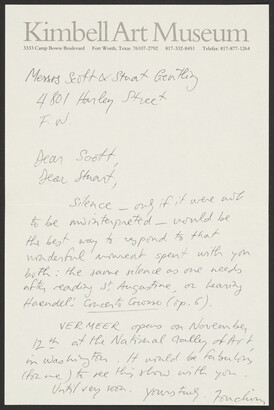 Kimbell Art Museum
3333 Camp Bowie Boulevard Fort Worth, Texas 76107-2792 817-332-8451 Telefax: 817-877-1264
Messrs Scott & Stuart Gentling
4801 Harley Street
F.W.
Dear Scott,
Dear Stuart,
Silence — only if it were not
to be misinterpreted — would be
the best way to respond to that
wonderful moment spent with you
both: the same silence as one needs
after reading St Augustine, or hearing
Haendel's Concerto Grosso (op. 6).
VERMEER opens on November
12th at the National Gallery of Art
in Washington. It would be fabulous
(for me) to see this show with you.
Until very soon. yours truly,